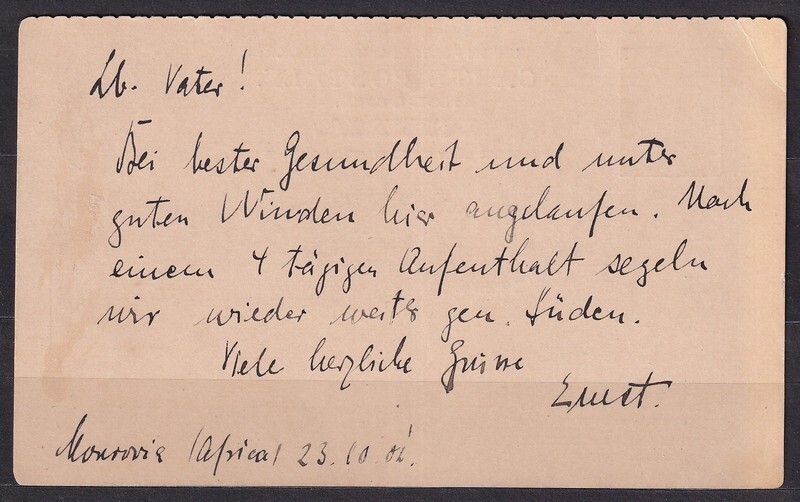 Lb. Vater!
Bei bester Gesundheit und unter
guten Winden hier angelaufen. Nach
einem 4 tägigen Aufenthalt segeln
wir wieder weiter gen. Süden.
Viele herzliche Grüsse
Ernst.
Monrovia (Africa) 23.10.02.